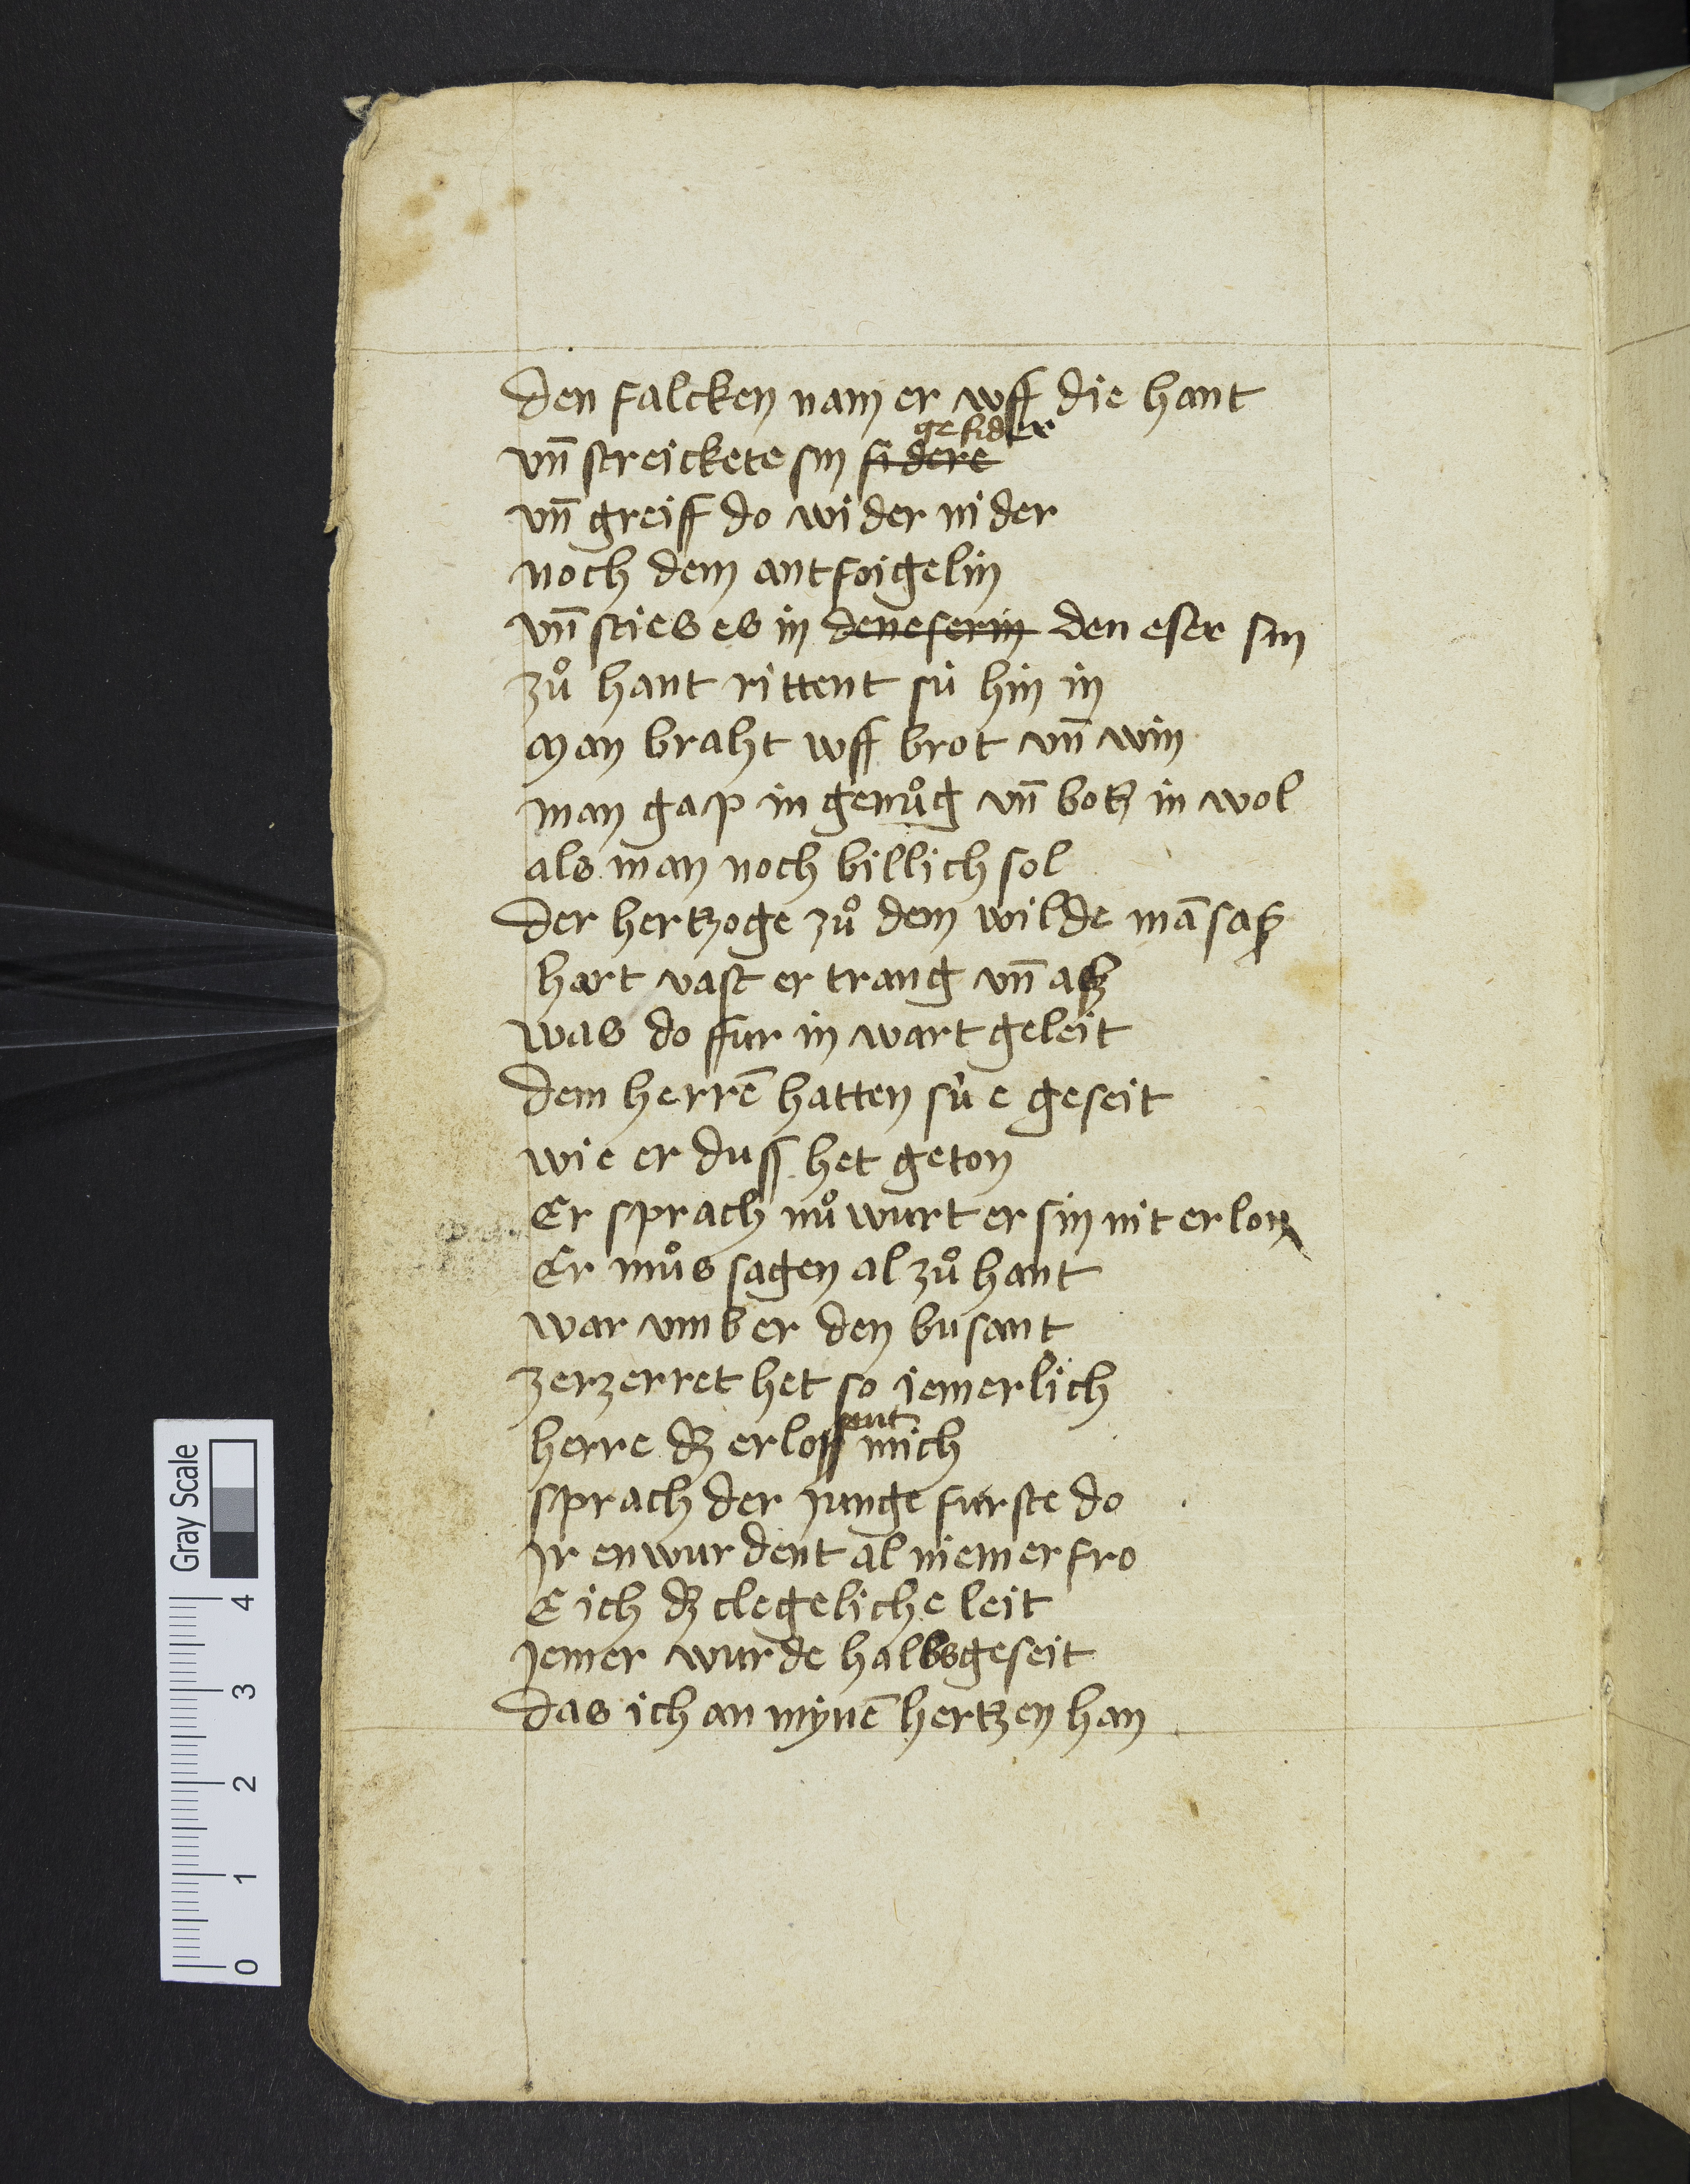 Den falcken nam er wff die hant
vn̄ streickete sin fidere gefider
vn̄ greiff do wider nider
noch dem antfoigelin
vn̄ sties es in deneserin den eser sin
zů hant rittent sú hin in
Man braht wff brot vn̄ win
man gap in genůg vn̄ botz in wol
als man noch billich sol
Der hertzoge zů dem wilde mā saß
hart vast er trang vn̄ aß
was do ffur in wart geleit
Dem herrē hatten sú e geseit
wie er duss het geton
Er sprach nů wurt er sin nit erlon
Er můs sagen al zů hant
war vmb er den busant
zerzerret het so iemerlich
herre dz erloss mich
sprach der junge furste do
Ir enwurdent al niemer fro
E ich dz clegeliche leit
Jemer wurde halbs geseit
Das ich an mynē hertzen han
Gray Scale
4
3
2
1
0